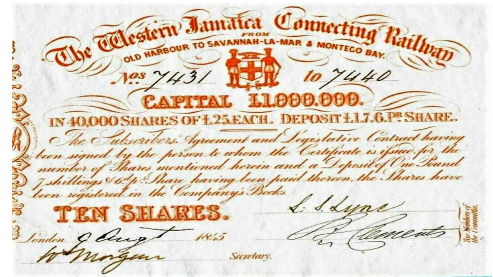 The Western Jamaica Connecting Railway
FROM
OLD HARBOUR TO SAVANNAH-LA-MAR & MONTEGO BAY.
Nos 7431 to 7440
CAPITAL £1,000,000.
IN 40,000 SHARES OF £25 EACH. DEPOSIT £1.7.6. Pr SHARE.
The Subscribers' Agreement and Legislative Contract having
been signed by the person to whom the Certificate is issued for the
number of Shares mentioned herein and a Deposit of One Pound
7 shillings & 6d Share having been paid thereon, the Shares have
been registered in the Company's Books.
TEN SHARES.
London 9 Augt 1845
Wm Morgan Secretary.
Clements
Members of
the Committee.